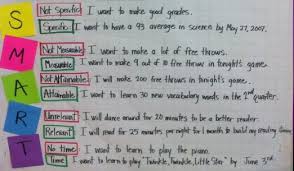 S
Not Specific I want to make good grades.
Specific I want to have a 93 average in science by May 27, 2007.
M
Not Measurable I want to make a lot of free throws.
Measurable I want to make 9 out of 10 free throw in tonight's game.
A
Not Attainable I will make 200 free throws in tonight's game.
Attainable I want to learn 30 new vocabulary words in the 2nd quarter.
R
Unrelevant I will dance around for 20 minutes to be a better reader.
Relevant I will read for 25 minutes per night for 1 month to build my reading
T
No time I want to learn to play the piano.
Time I want to learn to play "Twinkle, Twinkle, Little Star" by June 3rd.